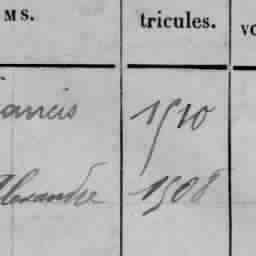 MS. tricules. vo
ancis 1510
Alexandre 1508